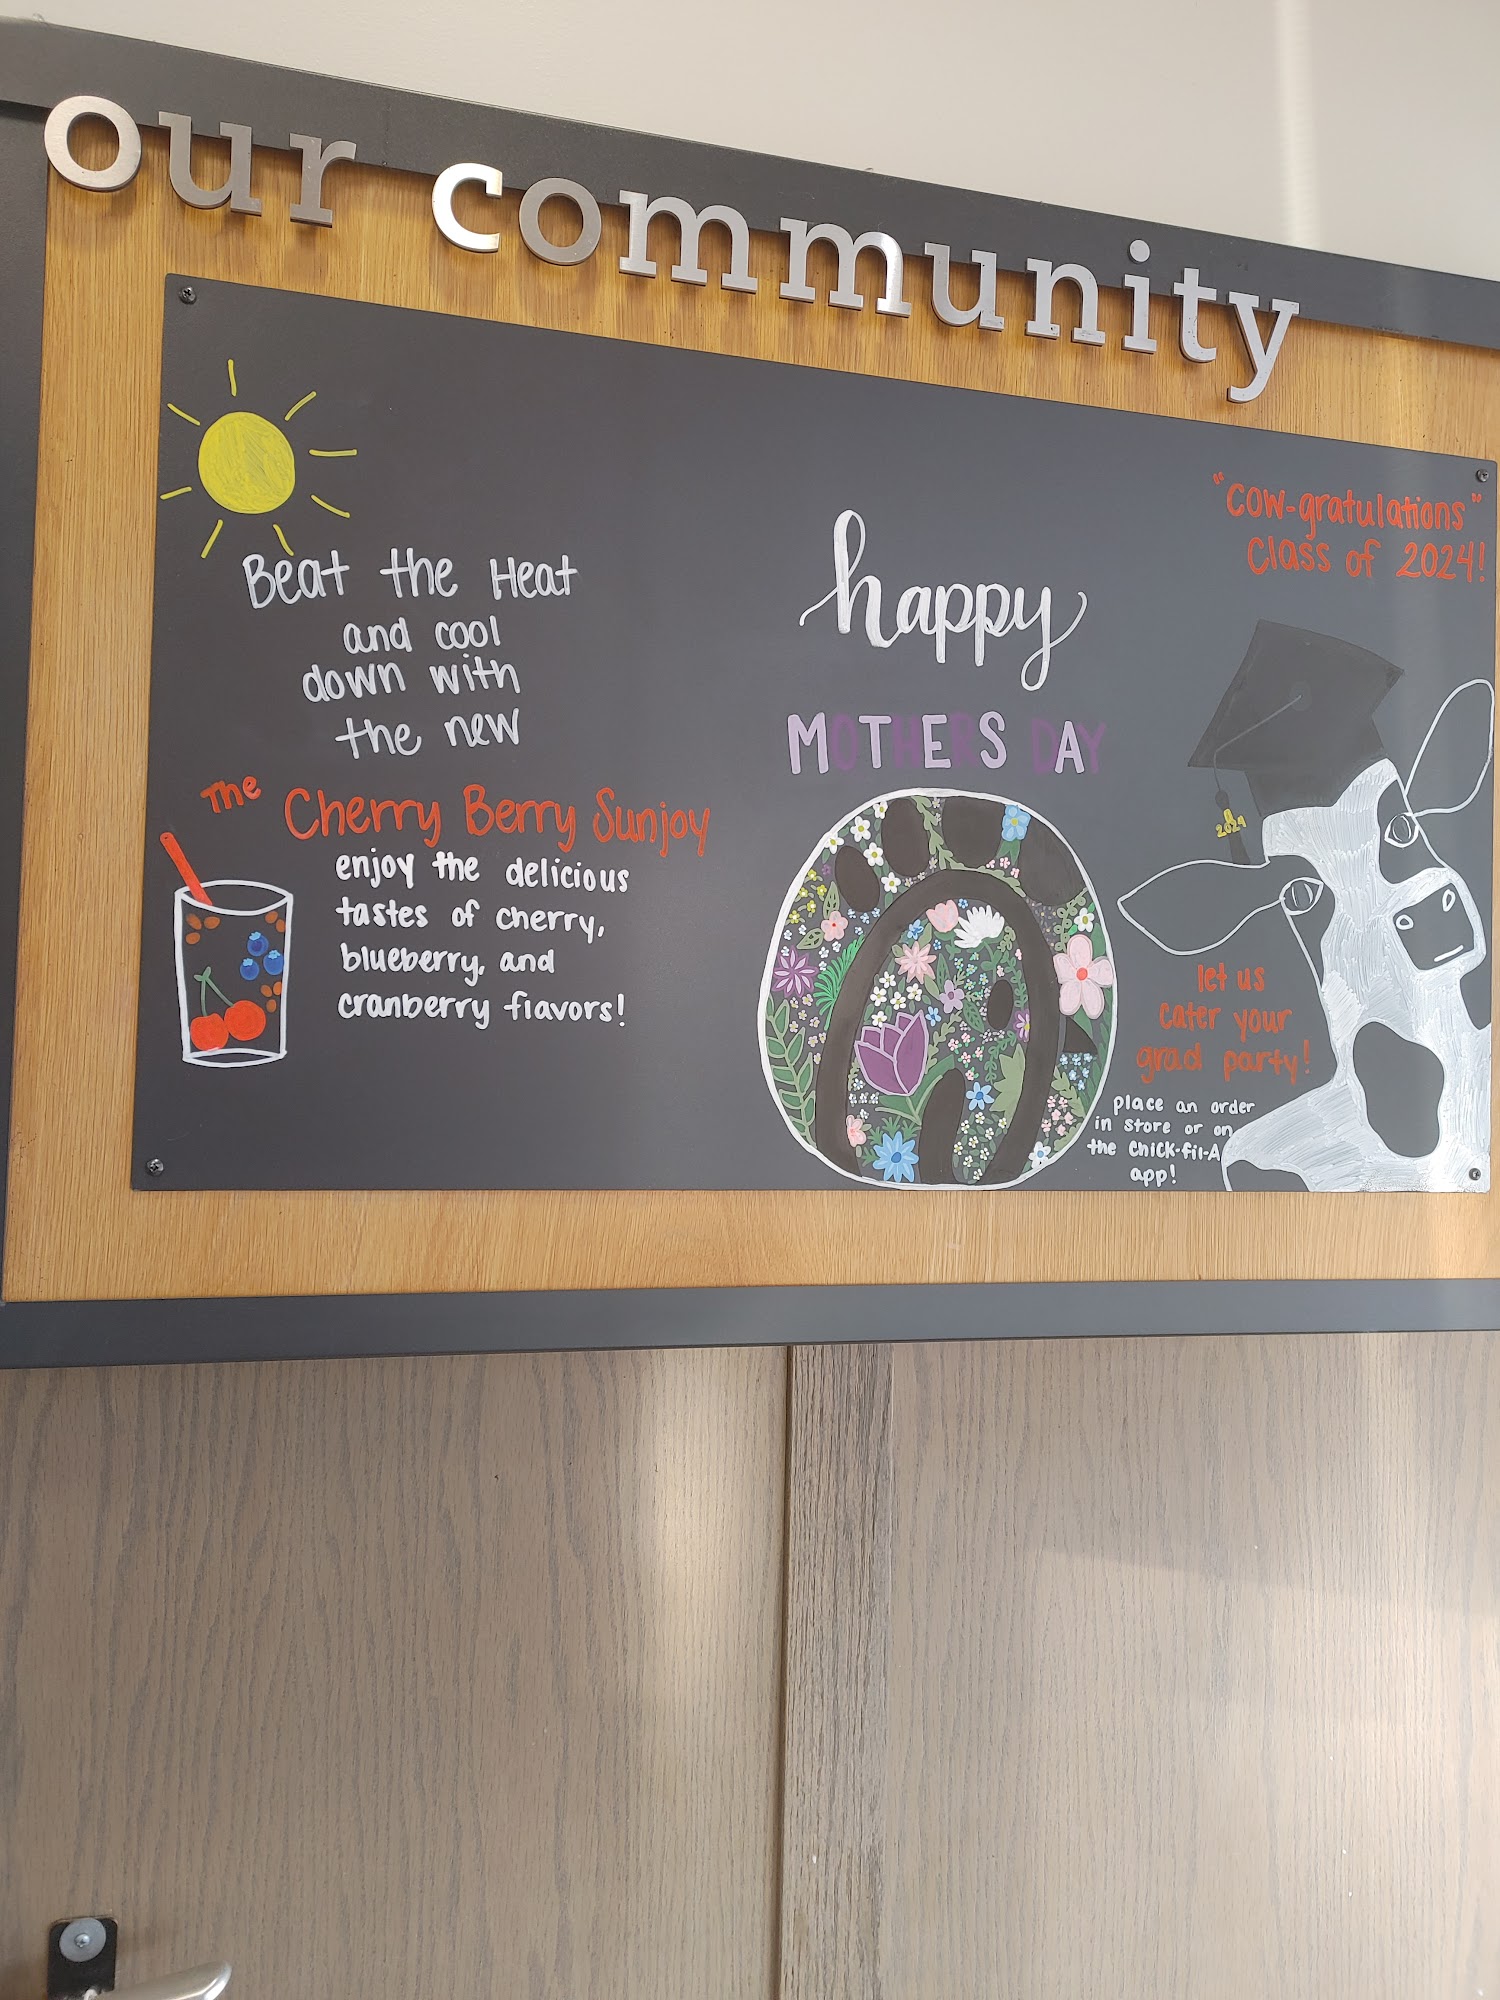 our community
Beat the Heat
and cool
down with
the new
The Cherry Berry Sunjoy
enjoy the delicious
tastes of cherry,
blueberry, and
cranberry flavors!
happy
MOTHERS DAY
"COW-gratulations"
Class of 2024!
2024
let us
cater your
grad party!
place an order
in store or on
the Chick-fil-A
app!